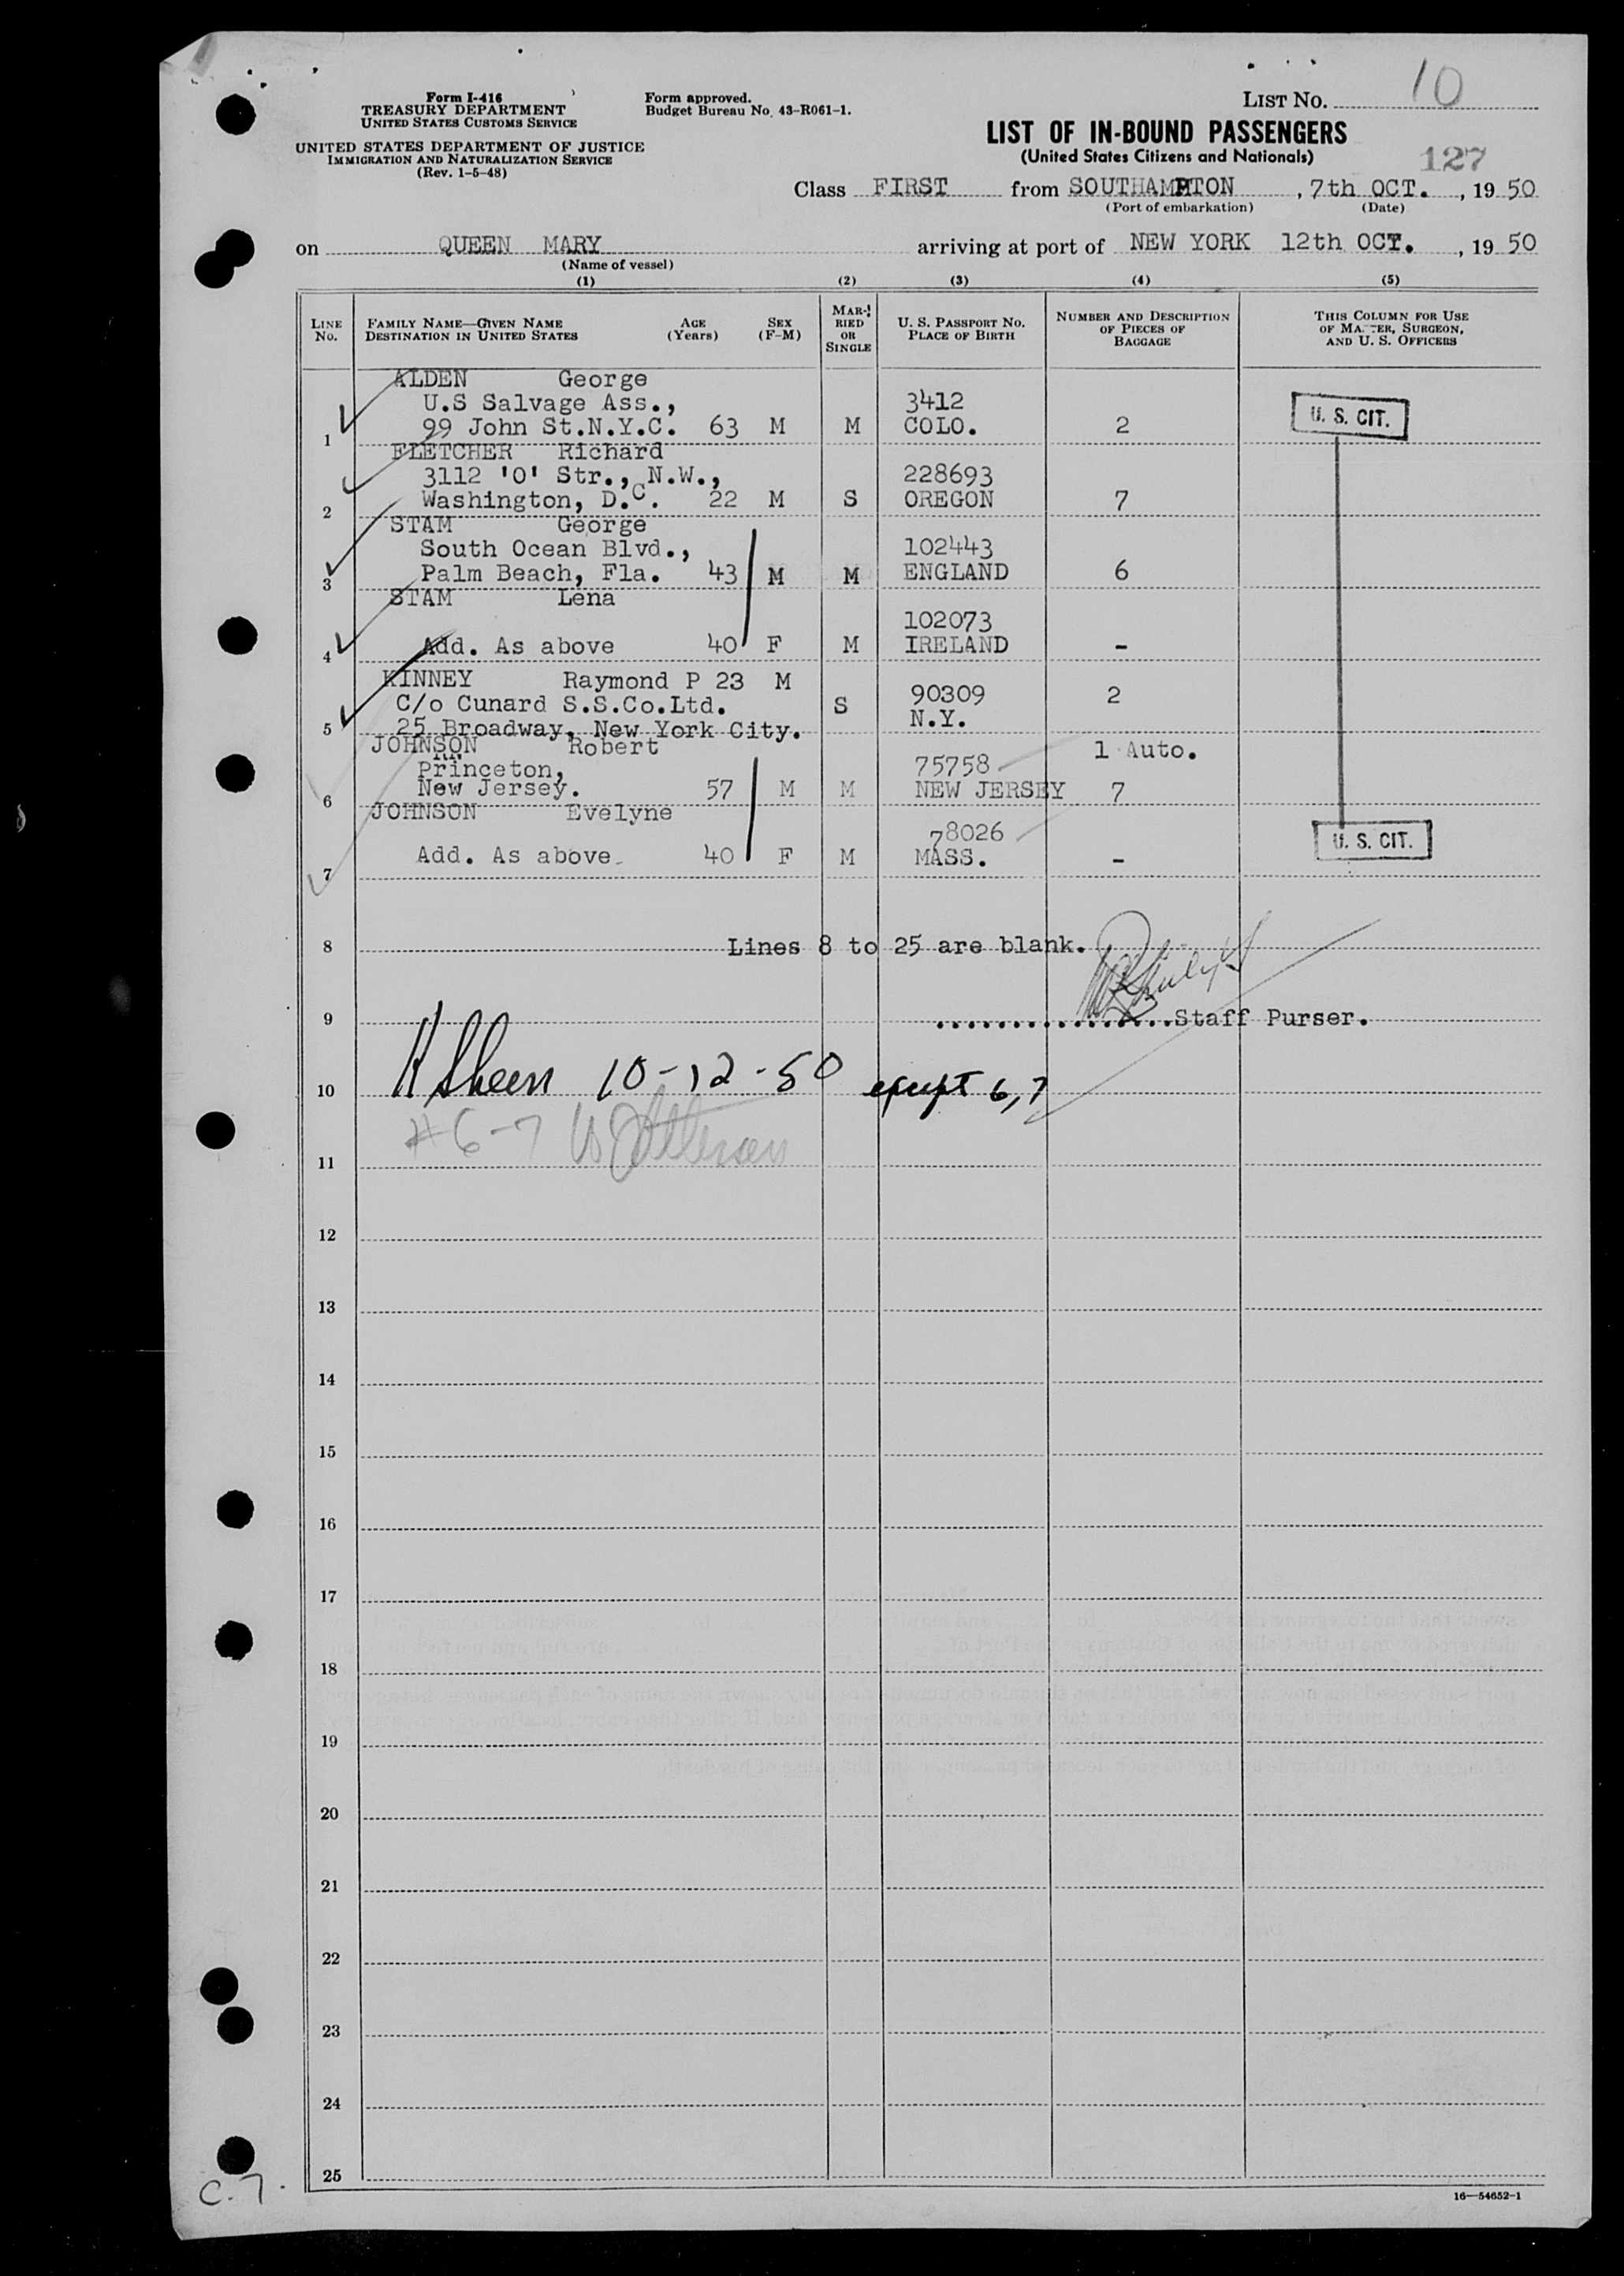 Form I-416
TREASURY DEPARTMENT
UNITED STATES CUSTOMS SERVICE
UNITED STATES DEPARTMENT OF JUSTICE
IMMIGRATION AND NATURALIZATION SERVICE
(Rev. 1-5-48)
Form approved.
Budget Bureau No. 43-R061-1.
LIST No. 10
LIST OF IN-BOUND PASSENGERS
(United States Citizens and Nationals)
127
Class FIRST from SOUTHAMPTON, 7th OCT., 19 50
(Port of embarkation) (Date)
on QUEEN MARY arriving at port of NEW YORK 12th OCT., 19 50
(Name of vessel)
(1) (2) (3) (4) (5)
LINE No.
FAMILY NAME—GIVEN NAME
DESTINATION IN UNITED STATES
AGE (Years)
SEX (F-M)
MARRIED OR SINGLE
U. S. PASSPORT No.
PLACE OF BIRTH
NUMBER AND DESCRIPTION OF PIECES OF BAGGAGE
THIS COLUMN FOR USE OF MASTER, SURGEON, AND U. S. OFFICERS
ALDEN George
U.S Salvage Ass., 3412
1 99 John St.N.Y.C. 63 M M COLO. 2 U. S. CIT.
FLETCHER Richard
3112 'O' Str., N.W., 228693
2 Washington, D.C. 22 M S OREGON 7
STAM George
South Ocean Blvd., 102443
3 Palm Beach, Fla. 43 M M ENGLAND 6
STAM Lena
102073
4 Add. As above 40 F M IRELAND -
KINNEY Raymond P 23 M
C/o Cunard S.S.Co.Ltd. S 90309 2
5 25 Broadway, New York City. N.Y.
JOHNSON Robert 1 Auto.
Princeton, 75758
6 New Jersey. 57 M M NEW JERSEY 7
JOHNSON Evelyne
78026
7 Add. As above. 40 F M MASS. - U. S. CIT.
8 Lines 8 to 25 are blank.
9 ................Staff Purser.
10 10-12-50 except 6,7
#6-7
11
12
13
14
15
16
17
18
19
20
21
22
23
24
25
C.7.
16—54652-1